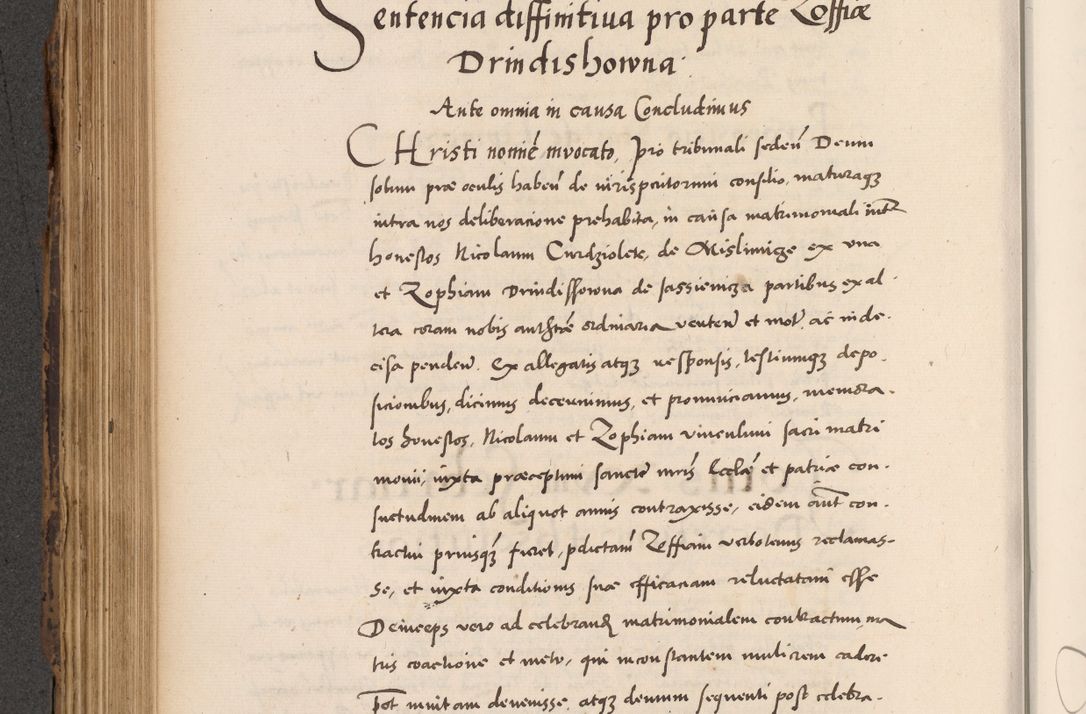 Sentencia diffinitiua pro parte Zoffiæ
Drindishowna
Ante omnia in causa Concludimus
CHristi nomiē inuocato, Pro tribunali seden̄ Deum
solum præ oculis haben̄ de iurisperitorum consilio, maturaq₃
intra nos deliberacione prehabita, in causa matrimoniali inter
honestos Nicolaum Cwrdziolek, de Mislimicze ex vna
et Zophiam Drindissowna de Iassienicza partibus ex al
tera coram nobis authōtæ ordinaria verten̄ et mot̄, ac inde-
cisa penden̄. Ex allegatis atq₃ responsis, testiumq₃ depo-
sicionibus, dicimus decernimus, et pronunciamus, memora-
tos honestos, Nicolaum et Zophiam vinculum sacri matri
monii, iuxta præceptum sanctæ mr̄is Eccl̄æ et patriæ con-
suetudinem ab aliquot annis contraxisse, eidem aūt con-
tractui priusq₃ fieret, p̄dictam Zoffiam verbotenus reclamas-
se, et iuxta conditionis suæ efficaciam reluctatam esse
Deinceps vero ad celebrand̄ matrimonialem contractum, ma
tris coactione et metu, qui inconstantem mulierem cadere
p̄ot inuitam deuenisse, atq₃ demum sequenti post celebra-